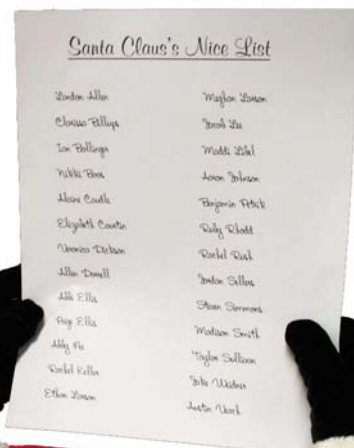 Santa Claus's Nice List
Landon Allen
Clarissa Billups
Ian Bollinger
Nikki Boos
Alaina Caudle
Elizabeth Countin
Veronica Dickson
Allen Dowell
Abbi Ellis
Paige Ellis
Abby
Rachel Keller
Ethan Larson
Meghan Larson
Jacob Lee
Maddi Libel
Aaron Johnson
Benjamin
Ruby Rhodd
Rachel Rush
Jordan Sellers
Steven Simmons
Madison Smith
Taylor Sullivan
Jake Weidner
Austin